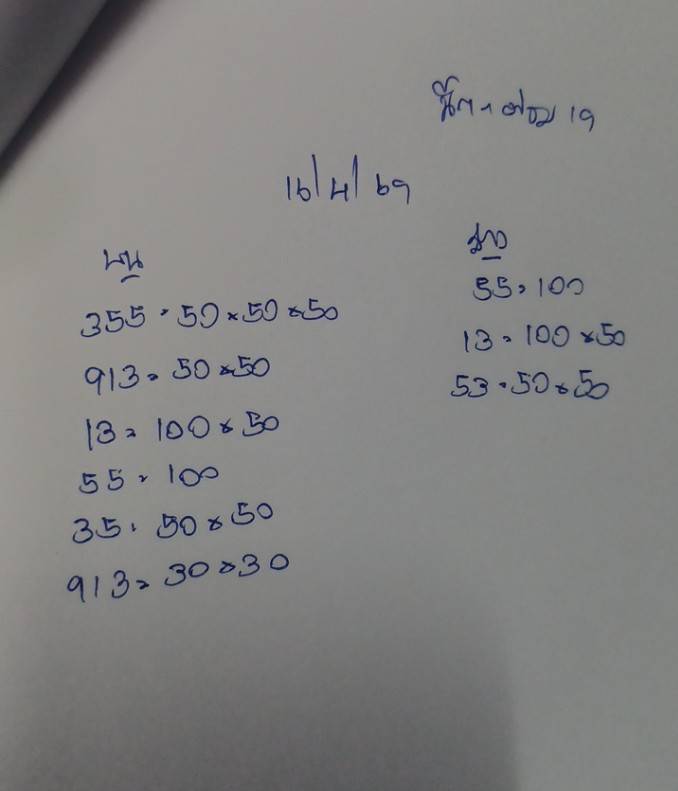 19
16/4/69
บน
355 = 50 × 50 × 50
913 = 50 × 50
13 = 100 × 50
55 = 100
35 = 50 × 50
913 = 30 × 30
ล่าง
55 = 100
13 = 100 × 50
53 = 50 × 50